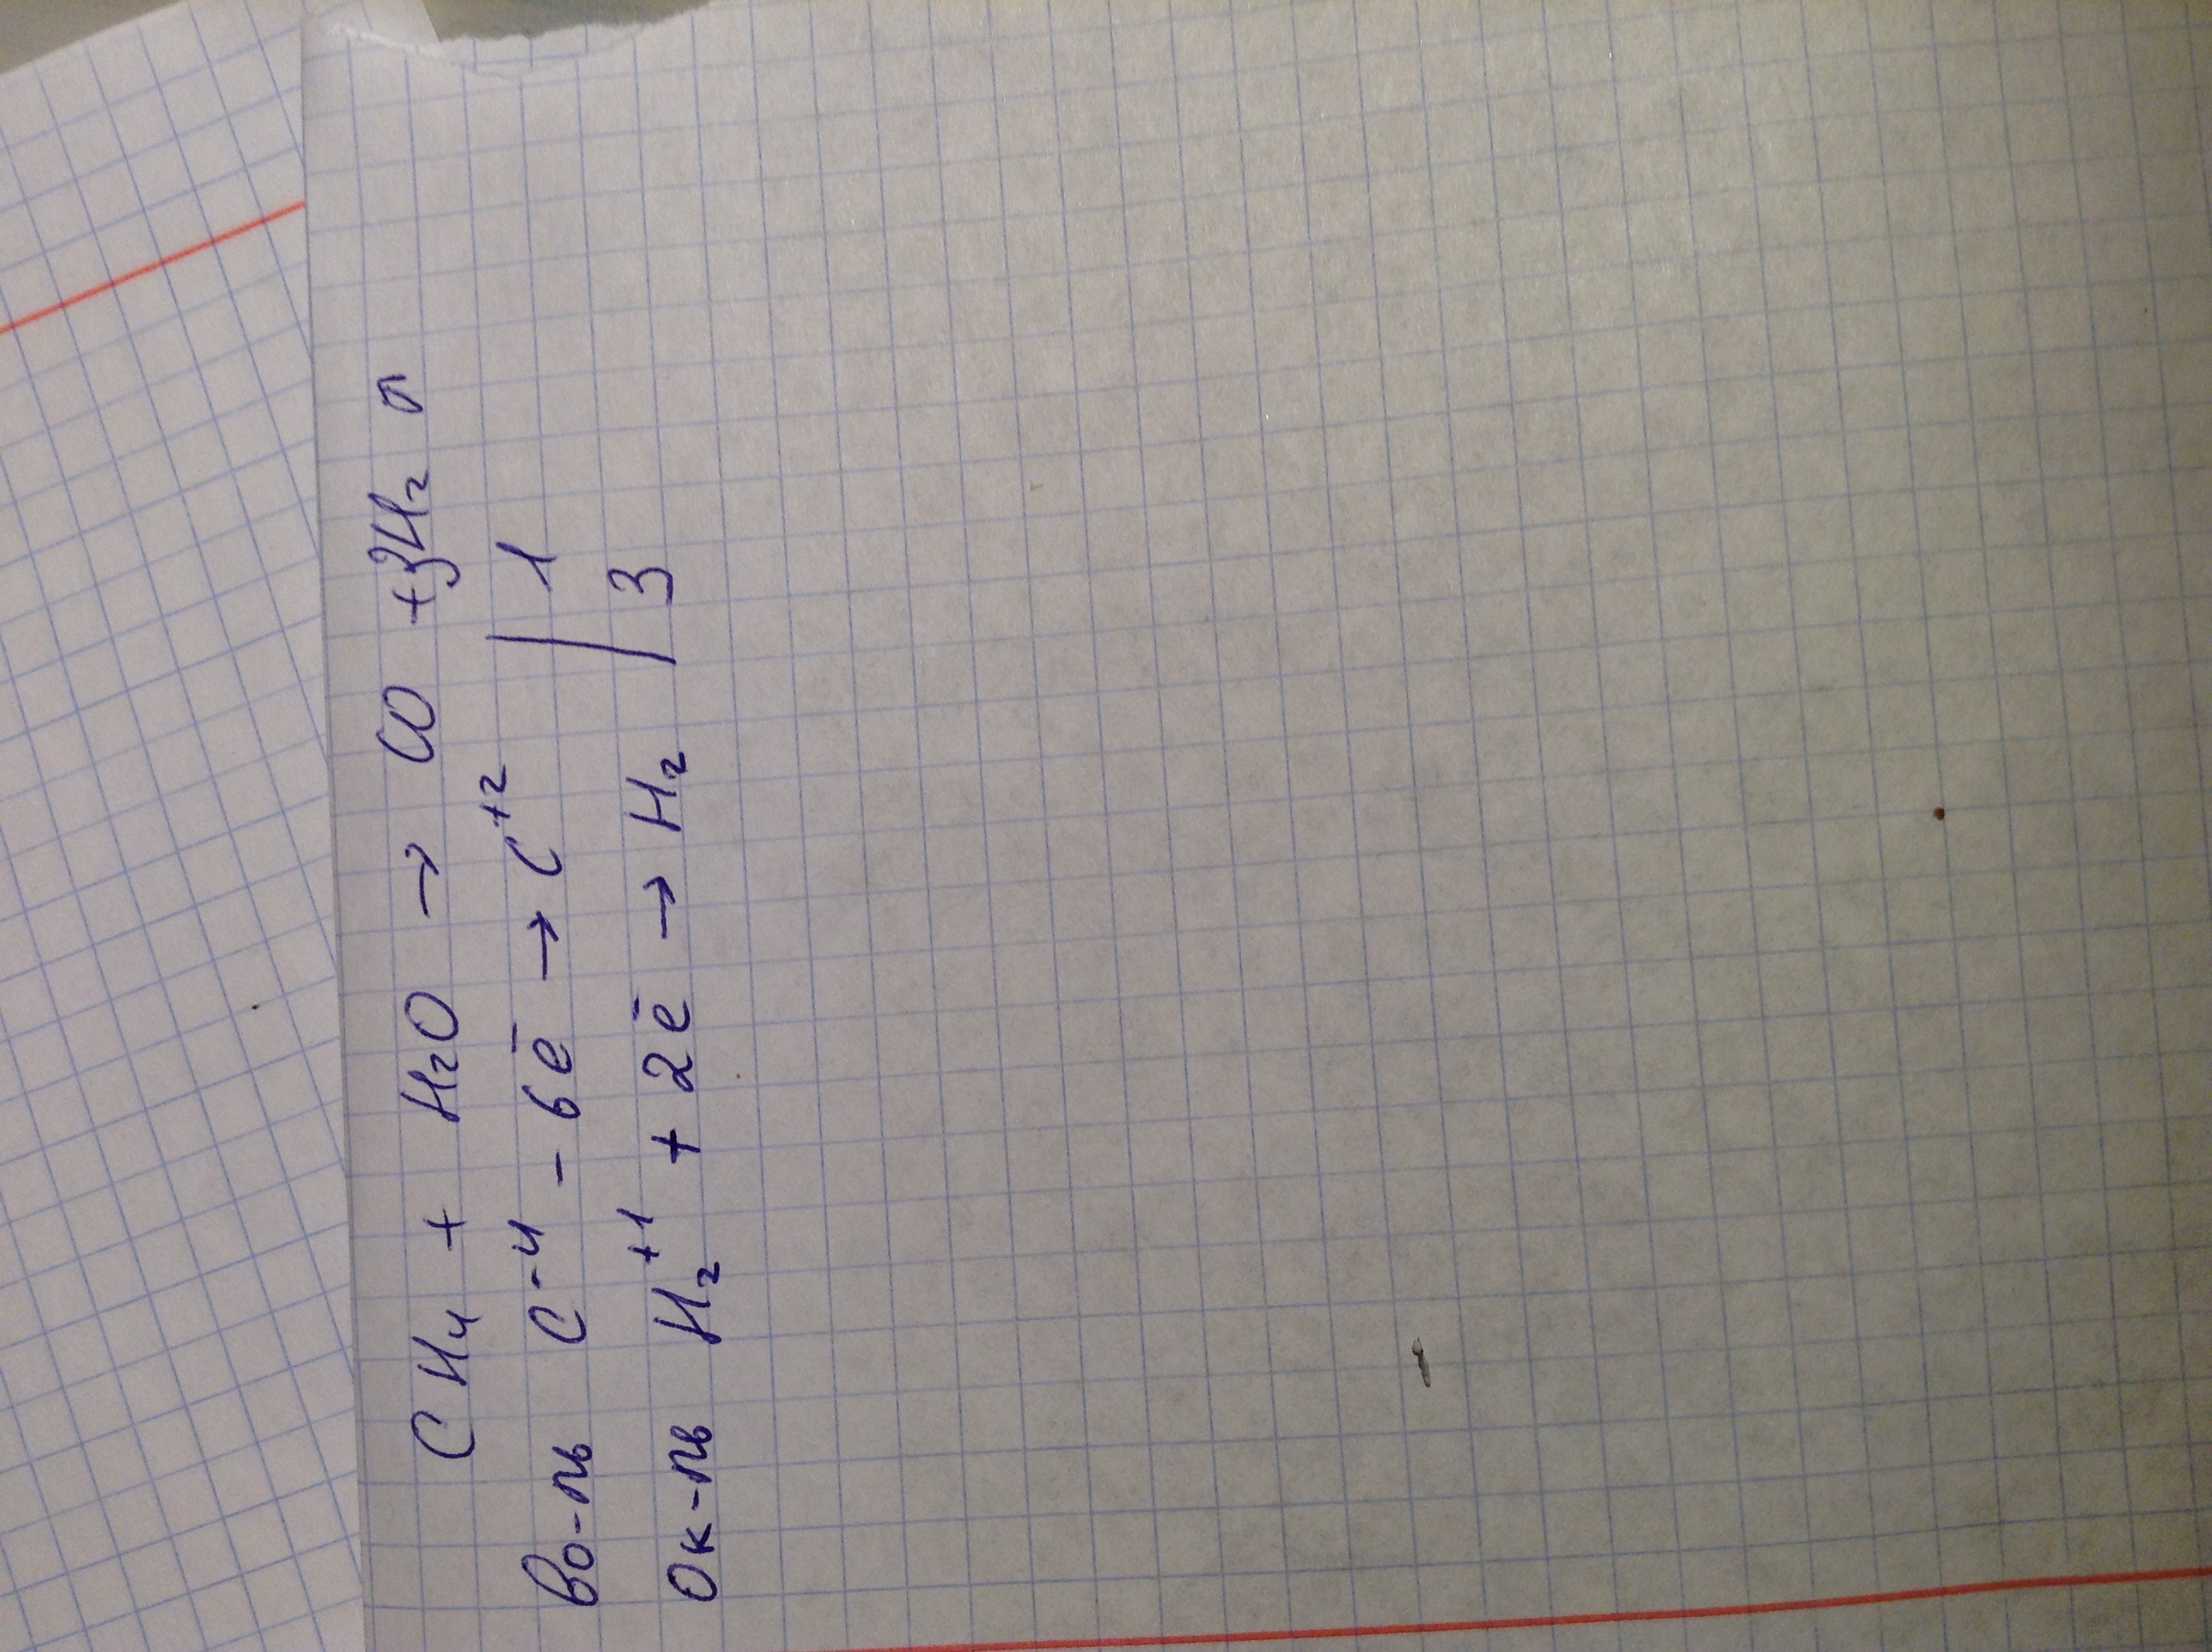 CH₄ + H₂O → CO + 3H₂
Во-ль C⁻⁴ - 6ē → C⁺² | 1
Ок-ль H₂⁺¹ + 2ē → H₂ | 3